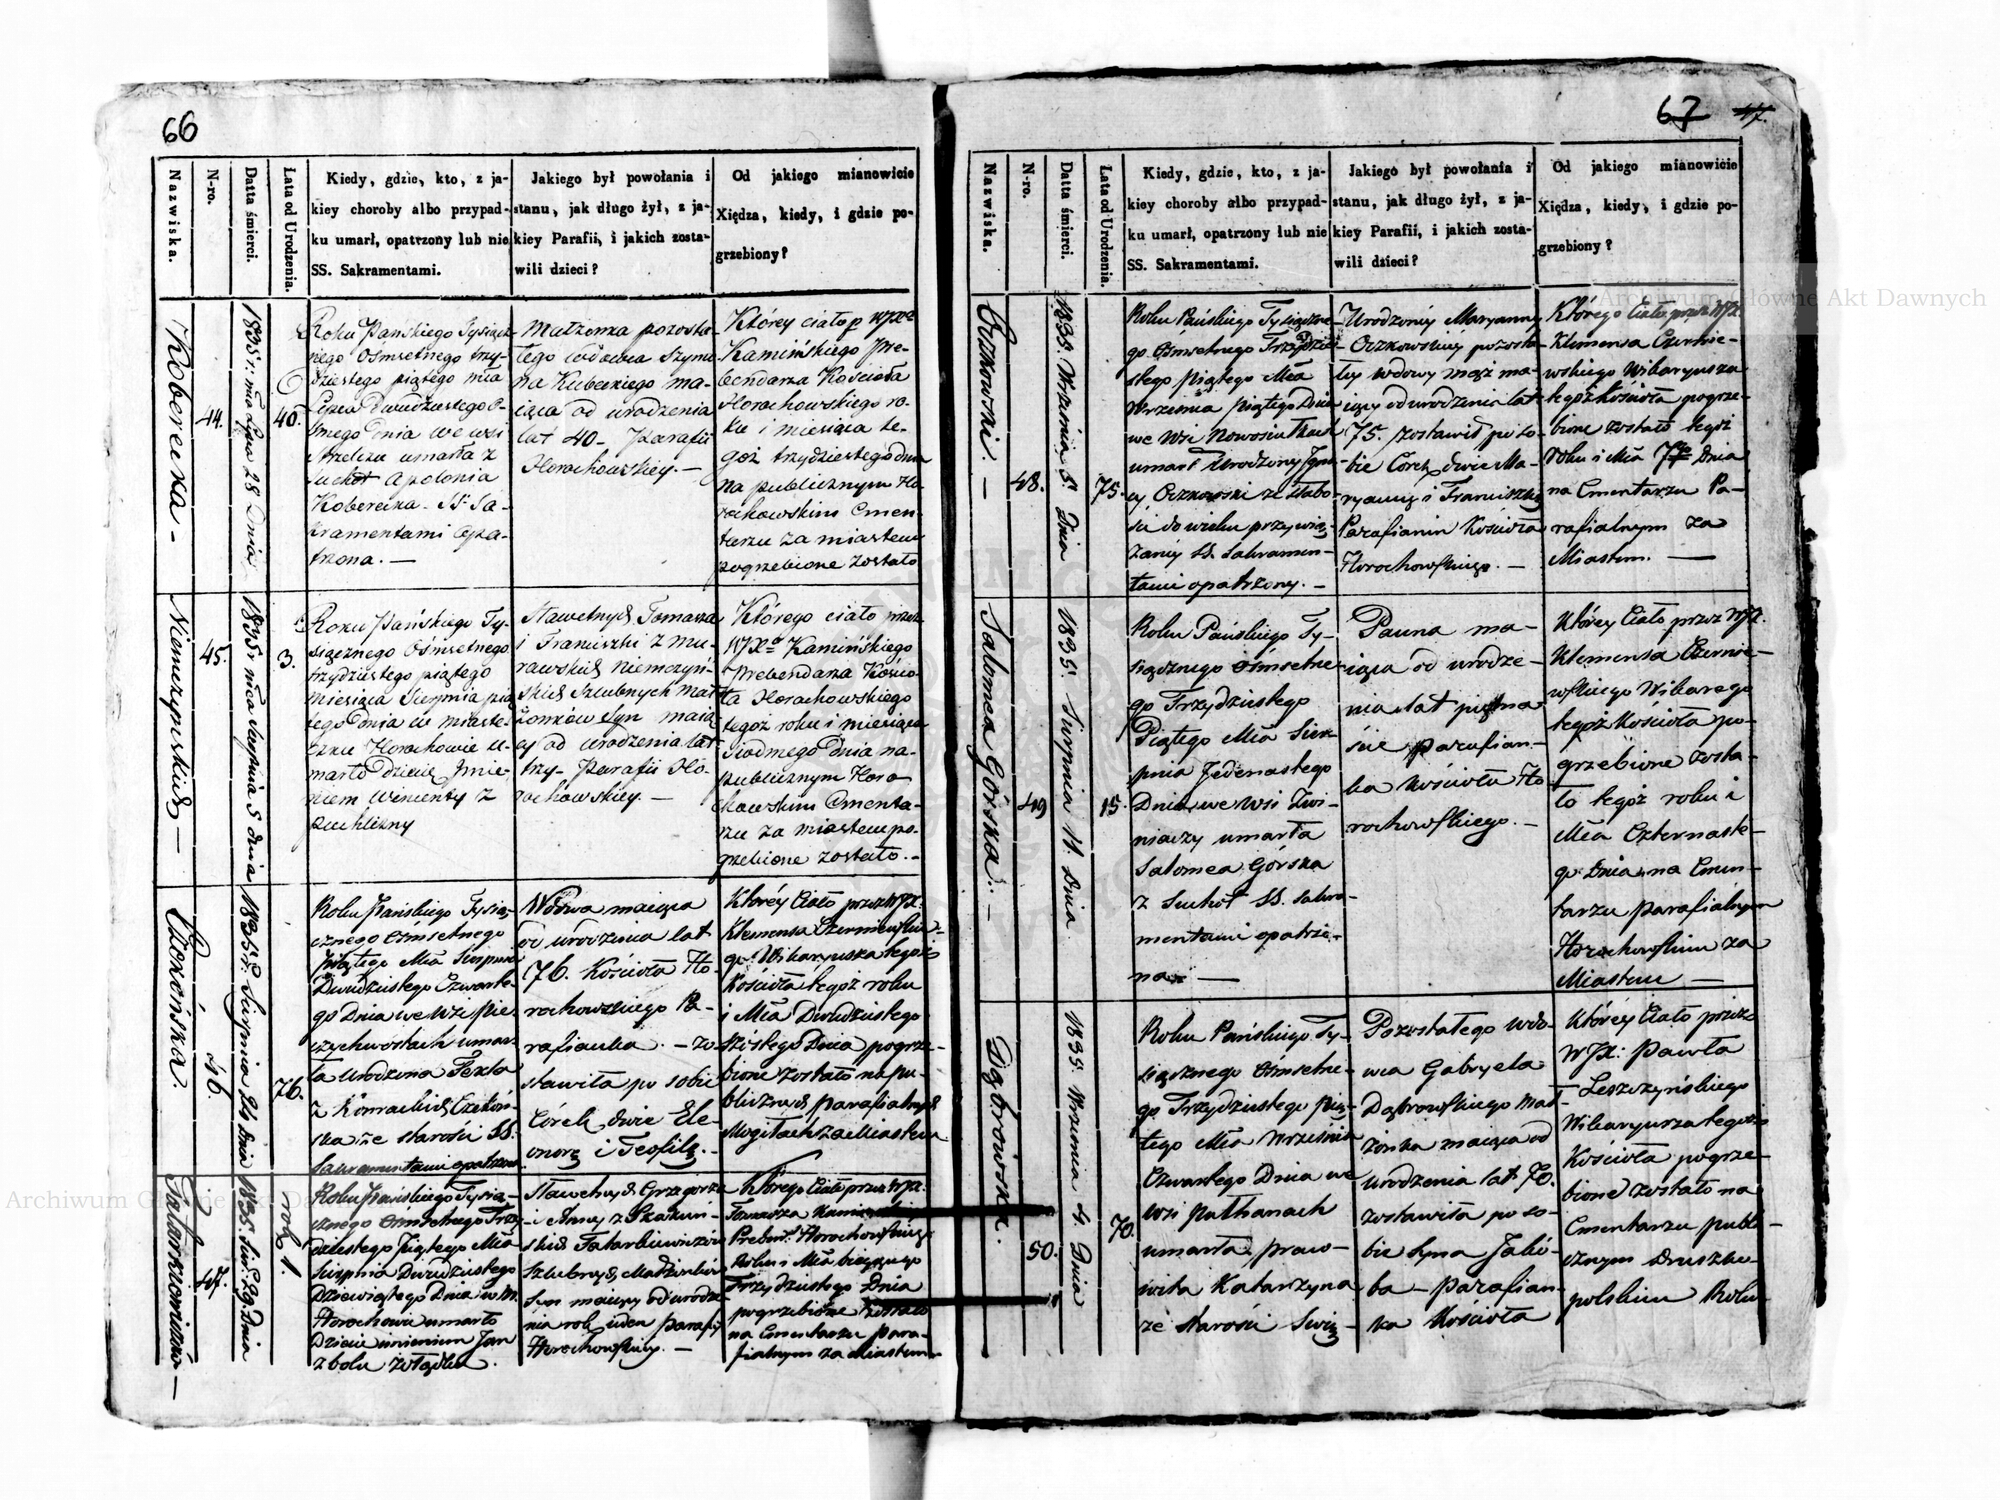 66
Nazwiska.
N-ro.
Datta śmierci.
Lata od Urodzenia.
Kiedy, gdzie, kto, z ja-
kiey choroby albo przypad-
ku umarł, opatrzony lub nie
SS. Sakramentami.
Jakiego był powołania i
stanu, jak długo żył, z ja-
kiey Parafii, i jakich zosta-
wili dzieci?
Od jakiego mianowicie
Xiędza, kiedy, i gdzie po-
grzebiony?
Koberecka -
44.
1835 r. mca Lipca 28 Dnia
40.
Roku Pańskiego Tysiącz-
nego Ośmsetnego trzy-
dziestego piątego mca
Lipca Dwudziestego O-
smego Dnia we wsi
Strzelcu umarła z
suchot Apolonia
Koberecka. SS. Sa-
kramentami opa-
trzona. —
Małżonka pozosta-
łego wdowca Szymo-
na Kubeckiego ma-
iąca od urodzenia
lat 40 - Parafii
Horochowskiey. —
Którey ciało p WJXa
Kamińskiego Pre-
bendarza Kościoła
Horochowskiego ro-
ku i miesiąca te-
goż trzydziestego dnia
na publicznym Ho-
rochowskim Cmen-
tarzu za miastem
pogrzebione zostało
Niemczynskich —
45.
1835 r mca Sierpnia 5 dnia
3.
Roku Pańskiego Ty-
siącznego Ośmsetnego
trzydziestego piątego
miesiąca Sierpnia pią
tego Dnia w miaste-
czku Horochowie u-
marło dziecię Imie-
niem Wincenty z
puchliny
Sławetnych Tomasza
i Franciszki z Mu-
rawskich Niemczyń-
skich Szlubnych Mał-
żonków Syn maią
cy od urodzenia lat
trzy - Parafii Ho-
rochowskiey. —
Którego ciało przez
WJXa Kamińskiego
Prebendarza Kościo-
ła Horochowskiego
tegoż roku i miesiąca
siódmego Dnia na-
publicznym Horo-
chowskim Cmenta-
rzu za miastem po-
grzebione zostało. —
46.
1835 r. Sierpnia 24 Dnia
76.
Roku Pańskiego Tysią-
cznego Ośmsetnego
piątego Mca Sierpnia
Dwudziestego Czwarte-
go Dnia we Wsi Pie-
czychwostach umar-
ła Urodzona Tekla
ska ze starości SS.
Sakramentami opatrzona
Wdowa maiąca
od urodzenia lat
76. Kościoła Ho-
rochowskiego Pa-
rafianka. — zo-
stawiła po sobie
Córek dwie Ele-
onorę i Teofilę. —
Którey Ciało przez WJX.
Klemensa Czerniewskie-
go Wikaryusza tegoż
Kościoła tegoż roku
i Mca Dwudziestego
szóstego Dnia pogrze-
bione zostało na pu-
blicznych parafialnych
Mogiłach za Miastem
Tatarkiewiczów —
47.
1835. Sier: 29. Dnia
rok 1.
Roku Pańskiego Tysią-
cznego Ośmsetnego Trzy
dziestego Piątego Mca
Sierpnia Dwudziestego
Dziewiątego Dnia w M.
Horochowie umarło
Dziecie imieniem Jan
z bolu żołądka.
Sławetnych Grzegorza
i Anny z
skich Tatarkiewiczów
Szlubnych Małżonków
Syn maiący od urodze-
nia rok ieden parafii
Horochowskiey. —
Którego Ciało przez WJX.
Tomasza Kamińskiego
Preben: Horochowskiego
Roku i Mca bieżącego
Trzydziestego Dnia
pogrzebione zostało
na Cmentarzu para-
fialnym za Miastem —
67 47.
Nazwiska.
N-ro.
Datta śmierci.
Lata od Urodzenia.
Kiedy, gdzie, kto, z ja-
kiey choroby albo przypad-
ku umarł, opatrzony lub nie
SS. Sakramentami.
Jakiego był powołania i
stanu, jak długo żył, z ja-
kiey Parafii, i jakich zosta-
wili dzieci?
Od jakiego mianowicie
Xiędza, kiedy, i gdzie po-
grzebiony?
Oczkowski. —
48.
1835. Września 5. Dnia
75.
Roku Pańskiego Tysiączne-
go Ośmsetnego Trzydzie-
stego Piątego Mca
Września Piątego Dnia
we Wsi Nowosiułkach
umarł Urodzony Igna-
cy Oczkowski ze słabo-
ści do wieku przywią-
zaney SS. Sakramen-
tami opatrzony. —
Urodzoney Maryanny
Oczkowskiey pozosta-
ley wdowy mąż ma-
iący od urodzenia lat
75. zostawił po so-
bie Córek dwie Ma-
ryannę i Franciszkę
Parafianin Kościoła
Horochowskiego. —
Którego Ciało przez WJX.
Klemensa Czernie-
wskiego Wikaryusza
tegoż Kościoła pogrze-
bione zostało tegoż
Roku i Mca 7go Dnia
na Cmentarzu Pa-
rafialnym za
Miastem. —
Salomea Górska. —
49
1835. Sierpnia 11. Dnia
15.
Roku Pańskiego Ty-
siącznego Ośmsetne-
go Trzydziestego
Piątego Mca Sier-
pnia Jedenastego
Dnia we Wsi Zwi-
niaczy umarła
Salomea Górska
z Suchot SS. Sakra-
mentami opatrzo-
na. —
Panna ma-
iąca od urodze-
nia lat piętna-
ście parafian-
ka Kościoła Ho-
rochowskiego. —
Którey Ciało przez WJX.
Klemensa Czernie-
wskiego Wikarego
tegoż Kościoła po-
grzebione zosta-
ło tegoż roku i
Mca Czternaste-
go Dnia na Cmen-
tarzu parafialnym
Horochowskim za
Miastem —
Dąbrowska.
50.
1835. Września 4. Dnia
70.
Roku Pańskiego Ty-
siącznego Ośmsetne-
go Trzydziestego pią-
tego Mca Września
Czwartego Dnia we
wsi Pułhanach
umarła praco-
wita Katarzyna
ze starości Świę-
Pozostałego wdo-
wca Gabryela
Dąbrowskiego Mał-
żonka maiąca od
urodzenia lat 70.
zostawiła po so-
bie Syna Jakó-
ba — parafian-
ka Kościoła
Którey Ciało przez
WJX: Pawła
Leszczyńskiego
Wikaryusza tegoż
Kościoła pogrze-
bione zostało na
Cmentarzu publi-
cznym Druszko-
polskim Roku
Archiwum Główne Akt Dawnych
Archiwum Główne Akt Dawnych